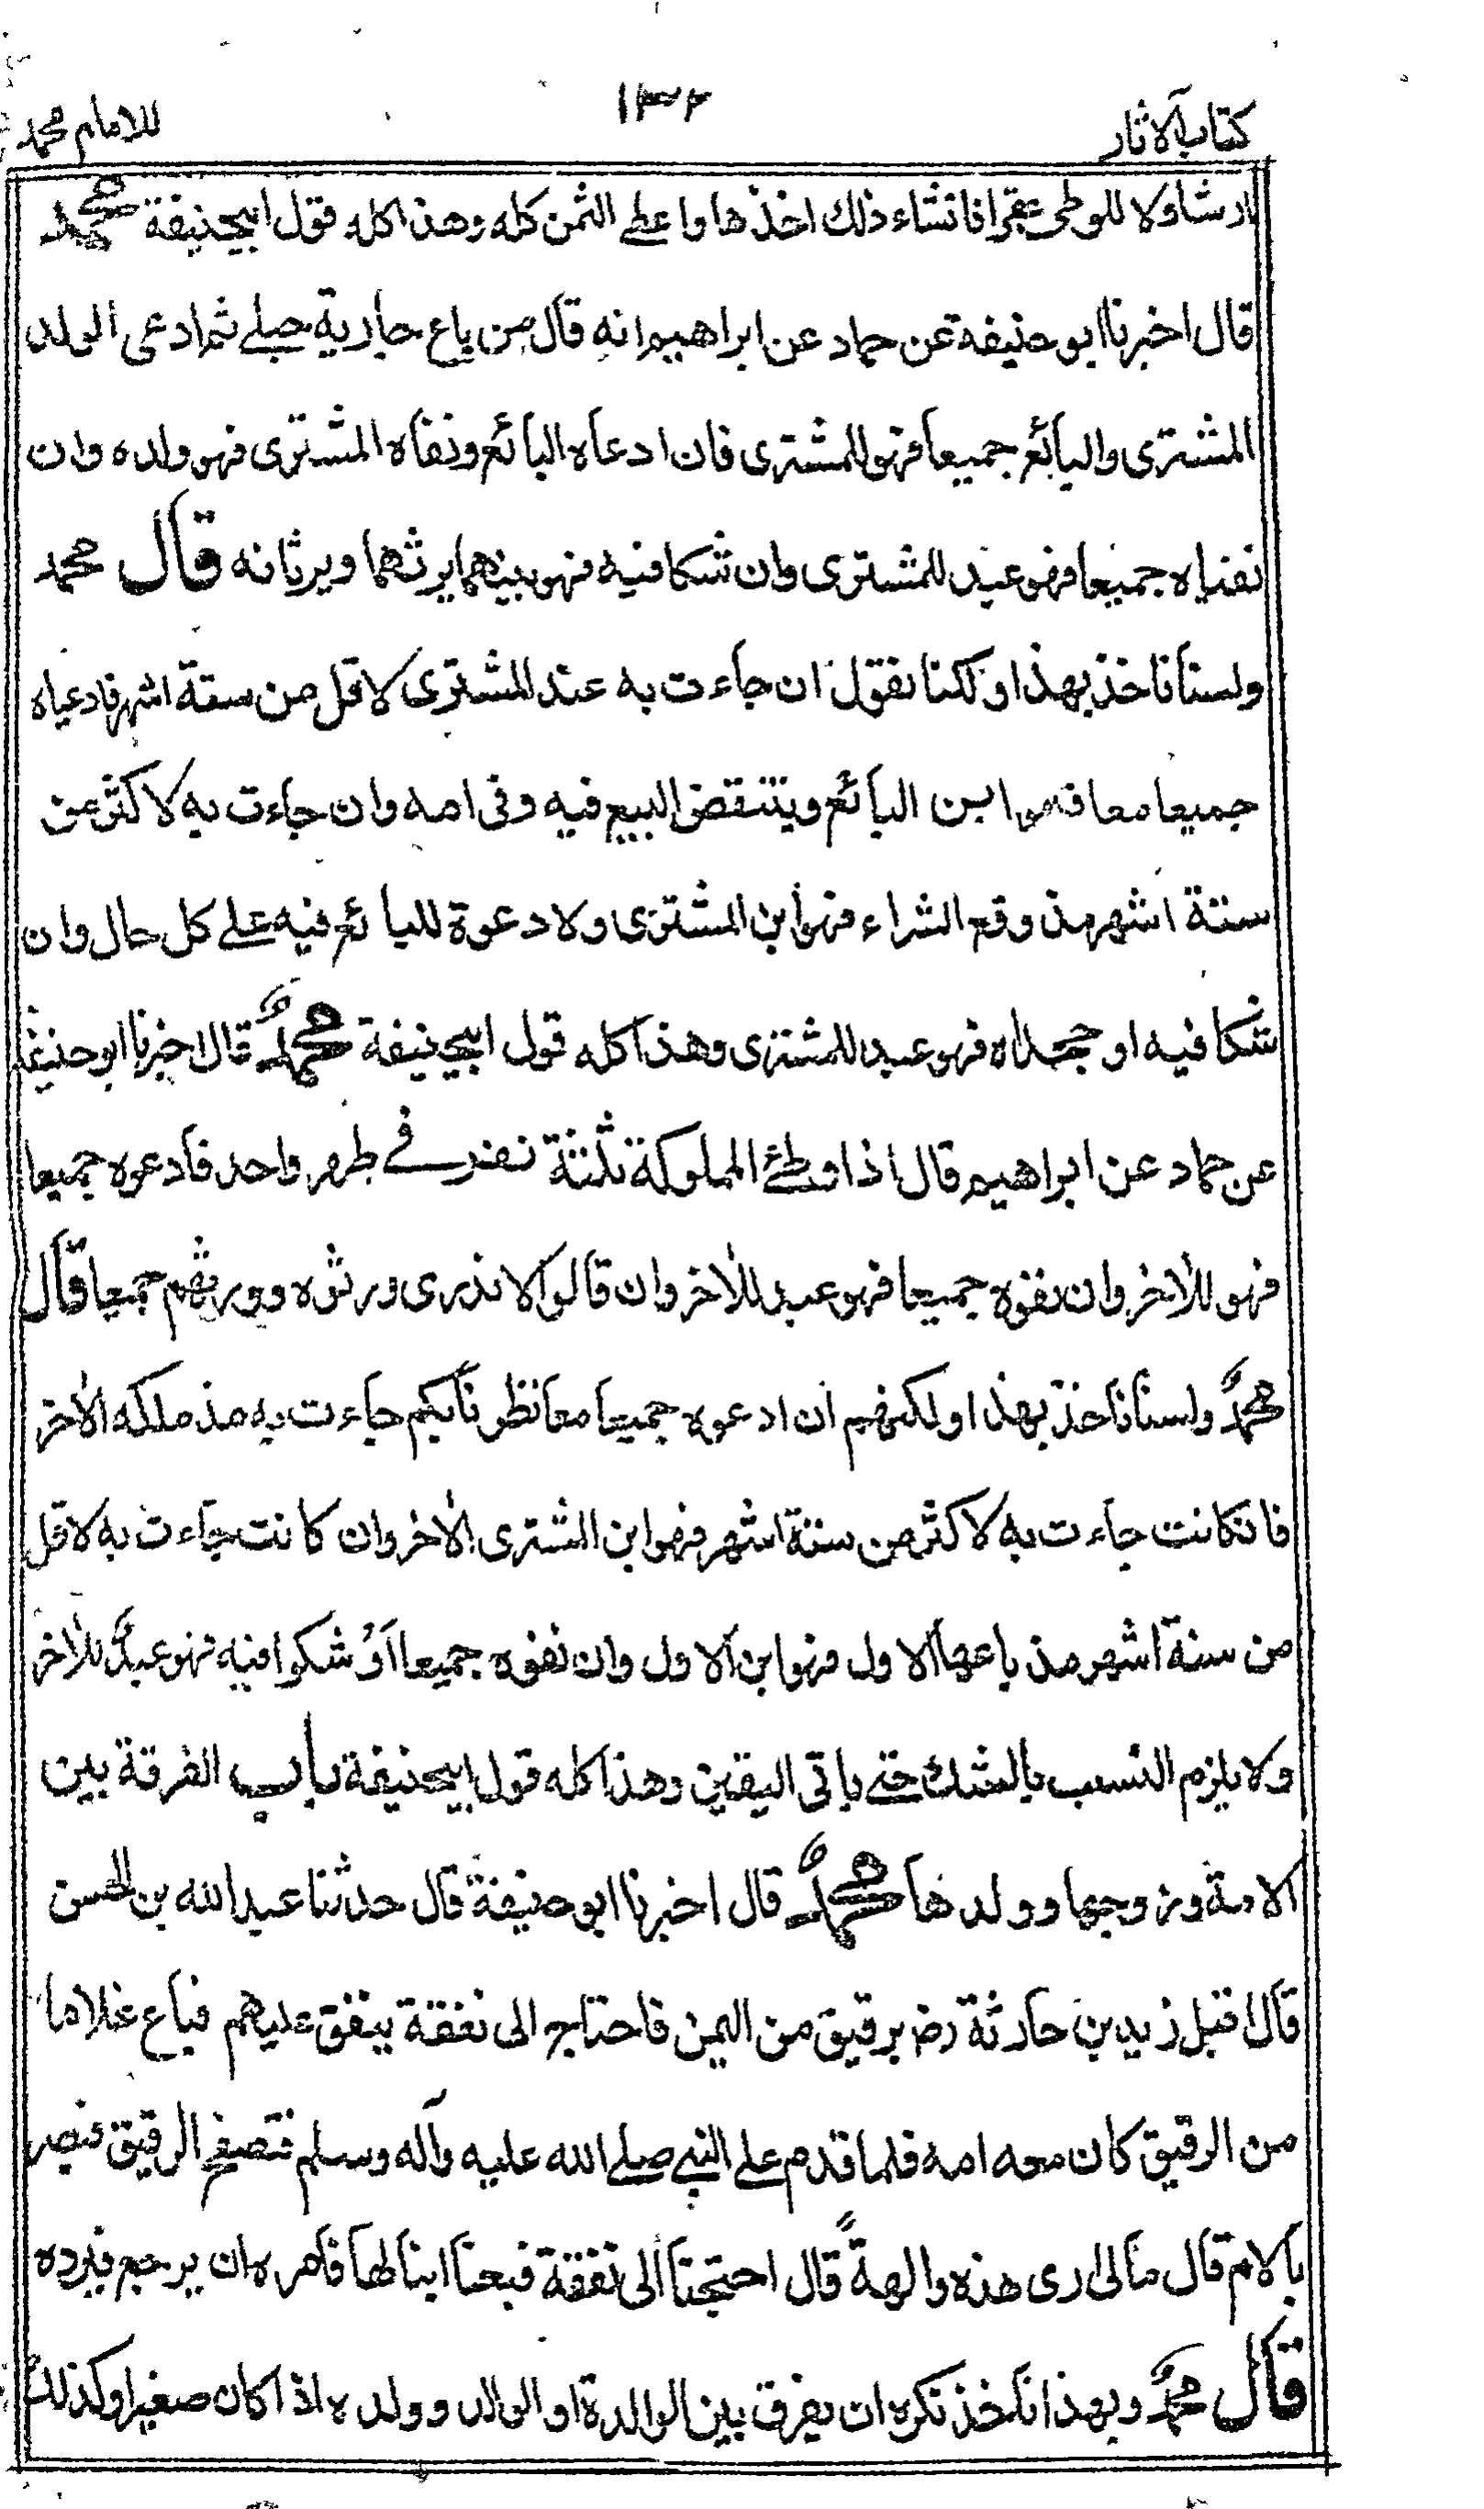 كتاب الآثار
١٣٢
للامام محمد
ارشا ولا للوطى عقرا فانشاء ذلك اخذها واعطے الثمن كله وهذا كله قول ابيحنيفة محمد
قال اخبرنا ابو حنيفة عن حماد عن ابراهيم انه قال من باع جارية حبلے ثم ادعى الولد
المشترى والبائع جميعا فهو للمشترى فان ادعاه البائع ونفاه المشترى فهو ولده وان
نفياه جميعا فهو عبد للمشترى وان شكا فيه فهو بينهما يرثهما ويرثانه قال محمد
ولسنا ناخذ بهذا ولكنا نقول ان جاءت به عند المشترى لاقل من ستة اشهر فادعياه
جميعا معا فهو ابن البائع وينتقض البيع فيه وفى امه وان جاءت به لاكثر من
ستة اشهر مذ وقع الشراء فهو ابن المشترى ولا دعوة للبائع فيه علے كل حال وان
شكا فيه او جحداه فهو عبد للمشترى وهذا كله قول ابيحنيفة محمد قال اخبرنا ابو حنيفة
عن حماد عن ابراهيم قال اذا وطئ المملوكة ثلثة نفر فے طهر واحد فادعوه جميعا
فهو للاخر وان نفوه جميعا فهو عبد للاخر وان قالوا لا ندرى ورثوه وورثهم جميعا قال
محمد ولسنا ناخذ بهذا ولكنهم ان ادعوه جميعا معا نظرنا بكم جاءت به مذ ملكه الاخر
فان كانت جاءت به لاكثر من ستة اشهر فهو ابن المشترى الاخر وان كانت جاءت به لاقل
من ستة اشهر مذ باعها الاول فهو ابن الاول وان نفوه جميعا او شكوا فيه فهو عبد للاخر
ولا يلزم النسب بالشك حتے ياتى اليقين وهذا كله قول ابيحنيفة باب الفرقة بين
الامة وزوجها وولدها محمد قال اخبرنا ابو حنيفة قال حدثنا عبد الله بن الحسن
قال اقبل زيد بن حارثة رض برقيق من اليمن فاحتاج الى نفقة ينفق عليهم فباع غلاما
من الرقيق كان معه امه فلما قدم على النبے صلے الله عليه وآله وسلم فتصفح الرقيق فبصر
بالام قال مالى ارى هذه والهة قال احتجنا الى نفقة فبعنا ابنا لها فامره ان يرجع فيرده
قال محمد وبهذا ناخذ نكره ان يفرق بين الوالدة او الوالد وولده اذا كان صغيرا وكذلك